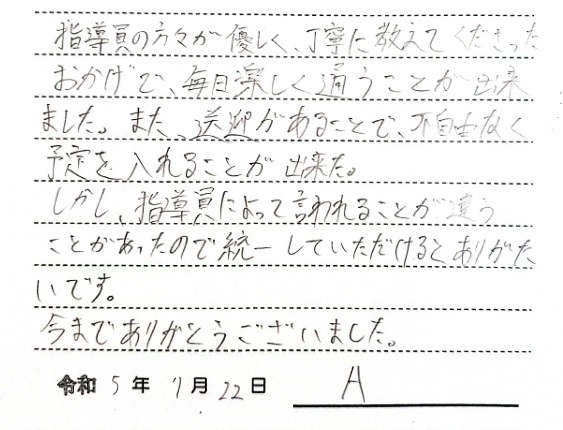 指導員の方々が優しく、丁寧に教えてくださった
おかげで、毎日楽しく通うことが出来
ました。また、送迎があることで、不自由なく
予定を入れることが出来た。
しかし、指導員によって言われることが違う
ことがあったので統一していただけるとありがた
いです。
今までありがとうございました。
令和 5 年 7 月 22 日 A